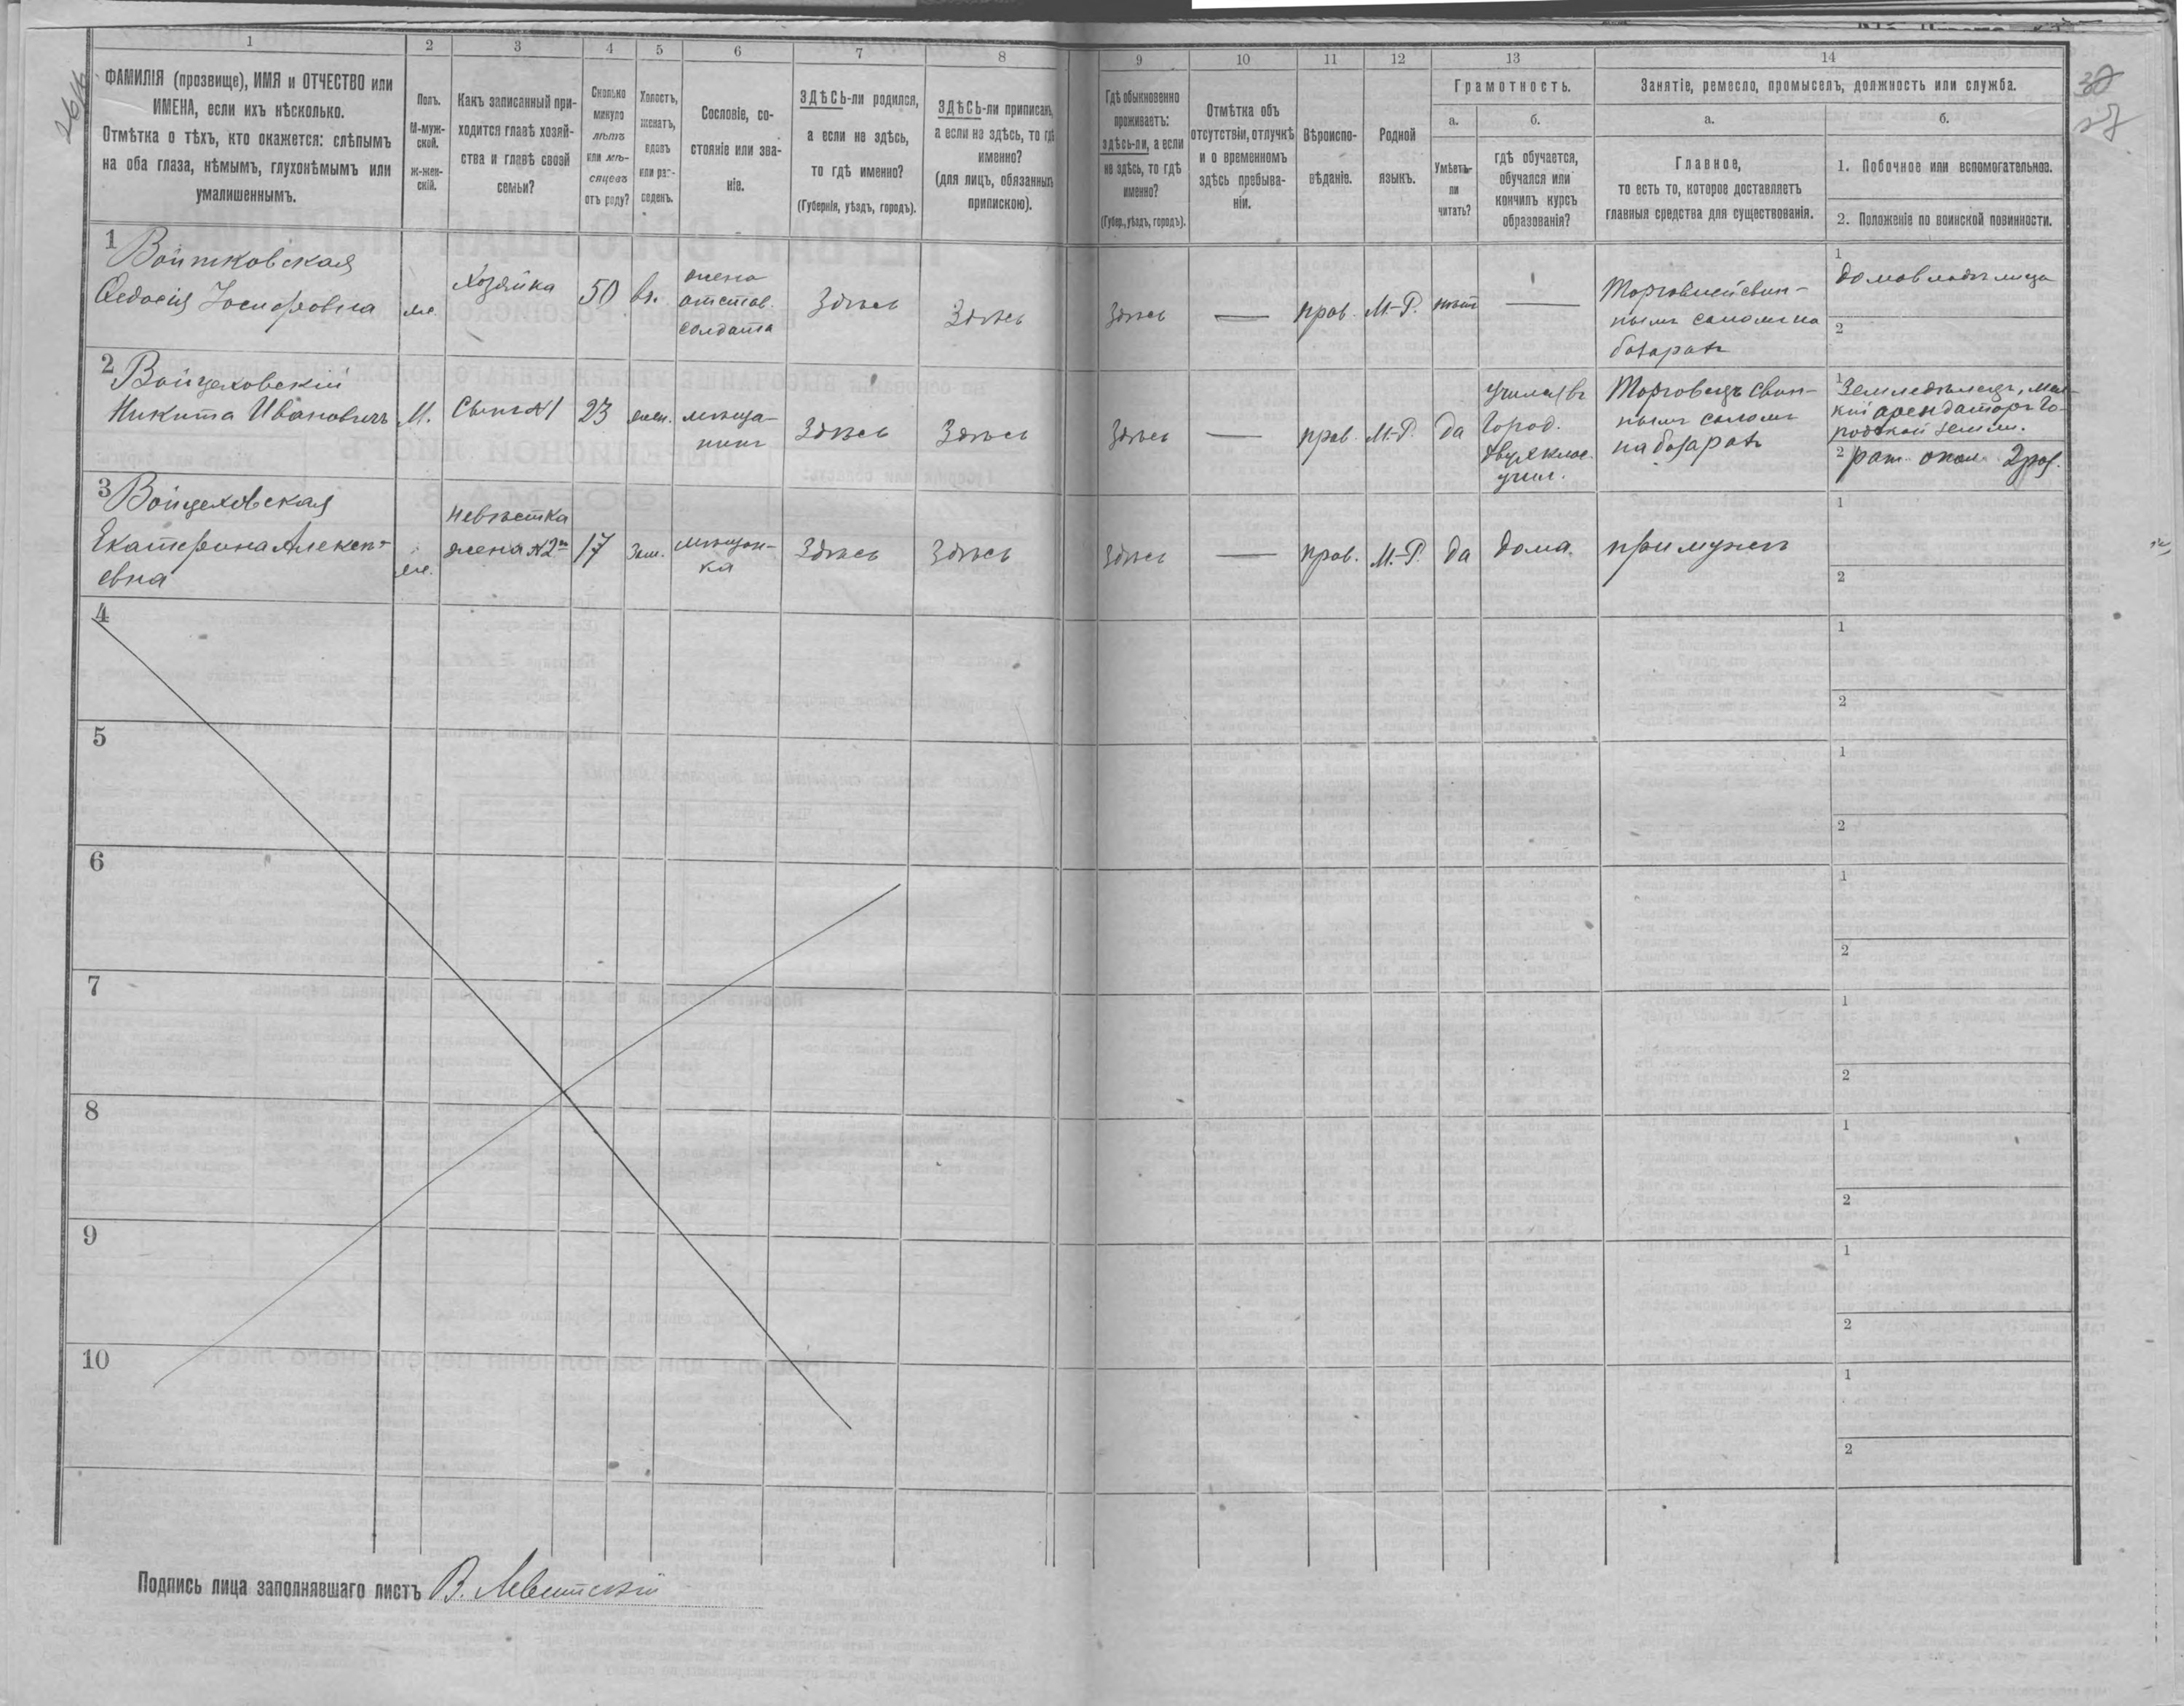 1
2
3
4
5
6
7
8
ФАМИЛІЯ (прозвище), ИМЯ и ОТЧЕСТВО или
ИМЕНА, если ихъ нѣсколько.
Отмѣтка о тѣхъ, кто окажется: слѣпымъ
на оба глаза, нѣмымъ, глухонѣмымъ или
умалишеннымъ.
Полъ.
М-муж-
ской.
ж-жен-
скій.
Какъ записанный при-
ходится главѣ хозяй-
ства и главѣ своей
семьи?
Сколько
минуло
лѣтъ
или мѣ-
сяцевъ
отъ роду?
Холостъ,
женатъ,
вдовъ
или раз-
веденъ.
Сословіе, со-
стояніе или зва-
ніе.
ЗДѢСЬ-ли родился,
а если не здѣсь,
то гдѣ именно?
(Губернія, уѣздъ, городъ).
ЗДѢСЬ-ли приписанъ,
а если не здѣсь, то гдѣ
именно?
(для лицъ, обязанныхъ
припискою).
9
10
11
12
13
14
Гдѣ обыкновенно
проживаетъ:
здѣсь-ли, а если
не здѣсь, то гдѣ
именно?
(Губер., уѣздъ, городъ).
Отмѣтка объ
отсутствіи, отлучкѣ
и о временномъ
здѣсь пребыва-
ніи.
Вѣроиспо-
вѣданіе.
Родной
языкъ.
Грамотность.
а.
Умѣетъ-
ли
читать?
б.
гдѣ обучается,
обучался или
кончилъ курсъ
образованія?
Занятіе, ремесло, промыселъ, должность или служба.
а.
Главное,
то есть то, которое доставляетъ
главныя средства для существованія.
б.
1. Побочное или вспомогательное.
2. Положеніе по воинской повинности.
1
Войтковская
Ѳедосія Іосифовна
ж.
Хозяйка
50
вд.
жена
отстав.
солдата
Здѣсь
Здѣсь
Здѣсь
—
прав.
М.-Р.
нѣтъ
—
Торговлей свин-
нымъ саломъ на
базарахъ
1
домовладѣлица
2
2
Войцеховскій
Никита Ивановичъ
М.
Сынъ №1
23
жен.
мѣща-
нинъ
Здѣсь
Здѣсь
Здѣсь
—
прав.
М.-Р.
да
училъ въ
Город.
двухклас.
учил.
Торговецъ свин-
нымъ саломъ
на базарахъ
1
Земледѣлецъ, мел-
кій арендаторъ го-
родской земли.
2
рат. опол. 2 раз.
3
Войцеховская
Екатерина Алексѣ-
евна
ж.
невѣстка
жена №2го
17
Зам.
мѣщан-
ка
Здѣсь
Здѣсь
Здѣсь
—
прав.
М.-Р.
да
дома
при мужѣ
1
2
4
1
2
5
1
2
6
1
2
7
1
2
8
1
2
9
1
2
10
1
2
Подпись лица заполнявшаго листъ В. Левитскій